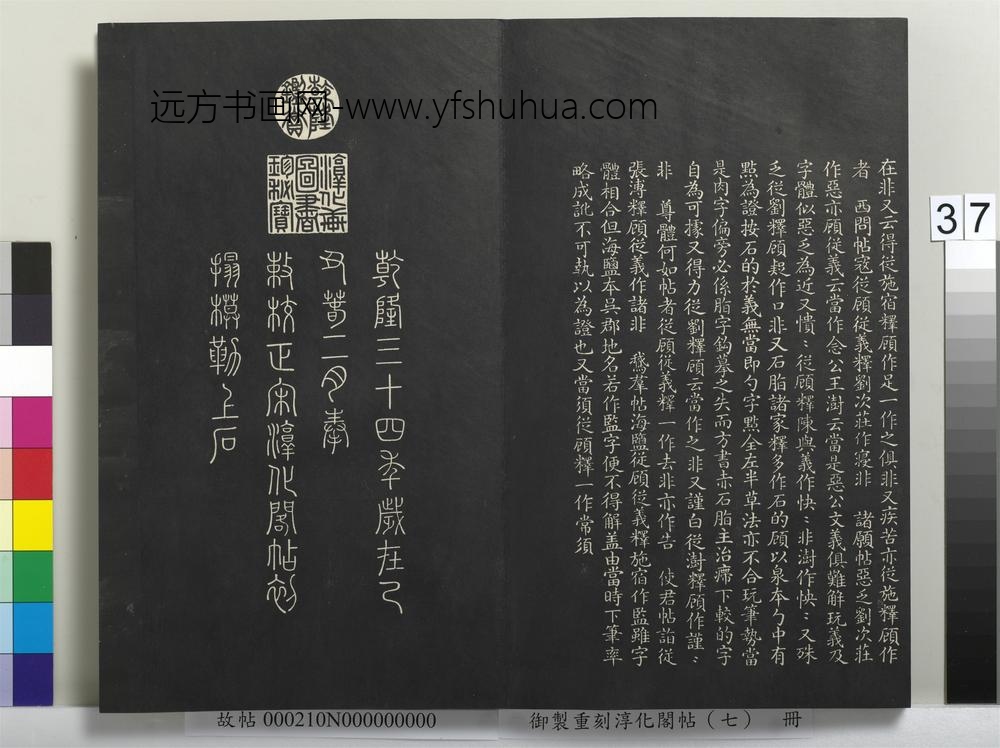 远方书画网-www.yfshuhua.com
在非又云得従施宿釋顧作足一作之俱非又疾苦亦従施釋顧作
者　西問帖宼従顧従義釋劉次莊作寢非　諸願帖惡乏劉次莊
作惡亦顧従義云當作念公王澍云當是惡公文義俱難解玩義及
字體似惡乏為近又憒：従顧釋陳與義作快：非澍作怏：又殊
乏従劉釋顧疑作口非又石脂諸家釋多作石的顧以泉本勺中有
點為證按石的於義無當即勺字點全左半草法亦不合玩筆勢當
是肉字偏旁必係脂字鈎摹之失而方書亦石脂主治癆下較的字
自為可據又得力従劉釋顧云當作之非又謹白従澍釋顧作謹：
非　尊體何如帖者従顧従義釋一作去非亦作告　使君帖詣従
張溥釋顧従義作諸非　鵞羣帖海鹽従顧従義釋施宿作監雖字
體相合但海鹽本吳郡地名若作監字便不得解盖由當時下筆率
略成訛不可執以為證也又當須従顧釋一作常須
乾隆鑒賞
淳化軒圖書珍秘寶
乾隆三十四年歲在己
丑春二月奉
敕校正宋淳化閣帖初
搨模勒上石
37
故帖 000210N000000000
御製重刻淳化閣帖（七）　冊